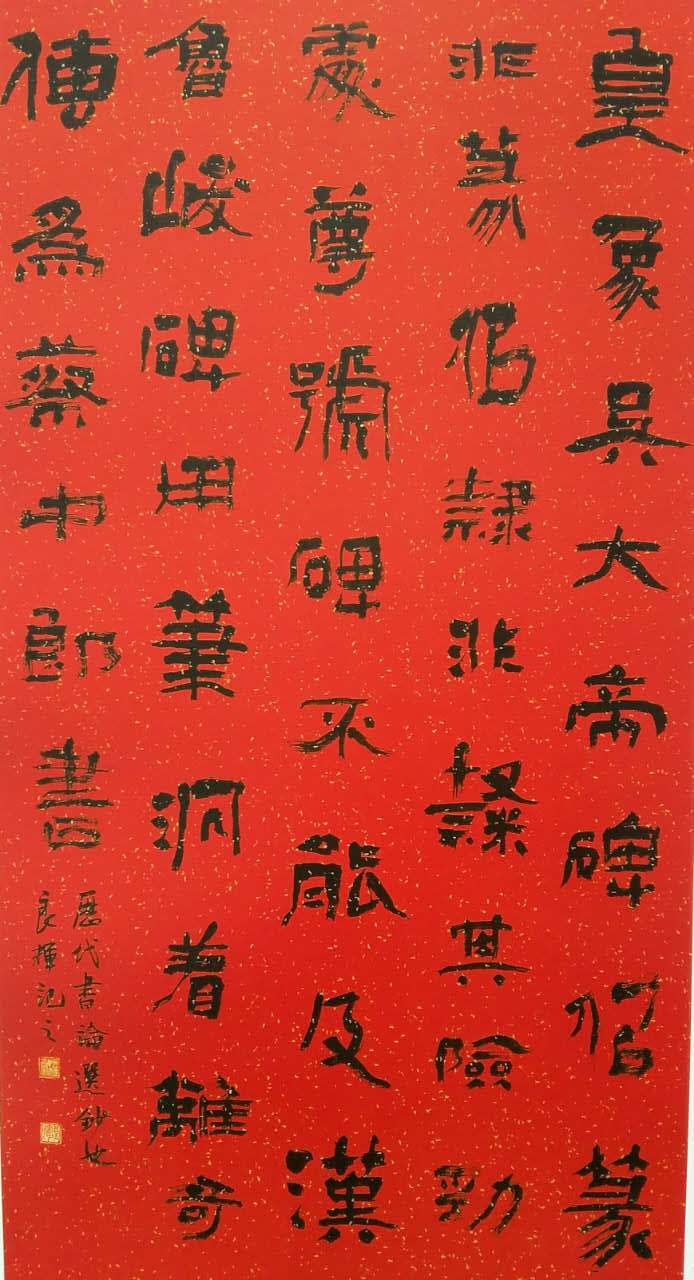 皇象吴大帝碑佀篆
非篆佀隸非隸其險勁
處尊號碑不能及漢
魯峻碑用筆洞着離奇
傳爲蔡中郎書
歷代書論選鈔也
良揮記之